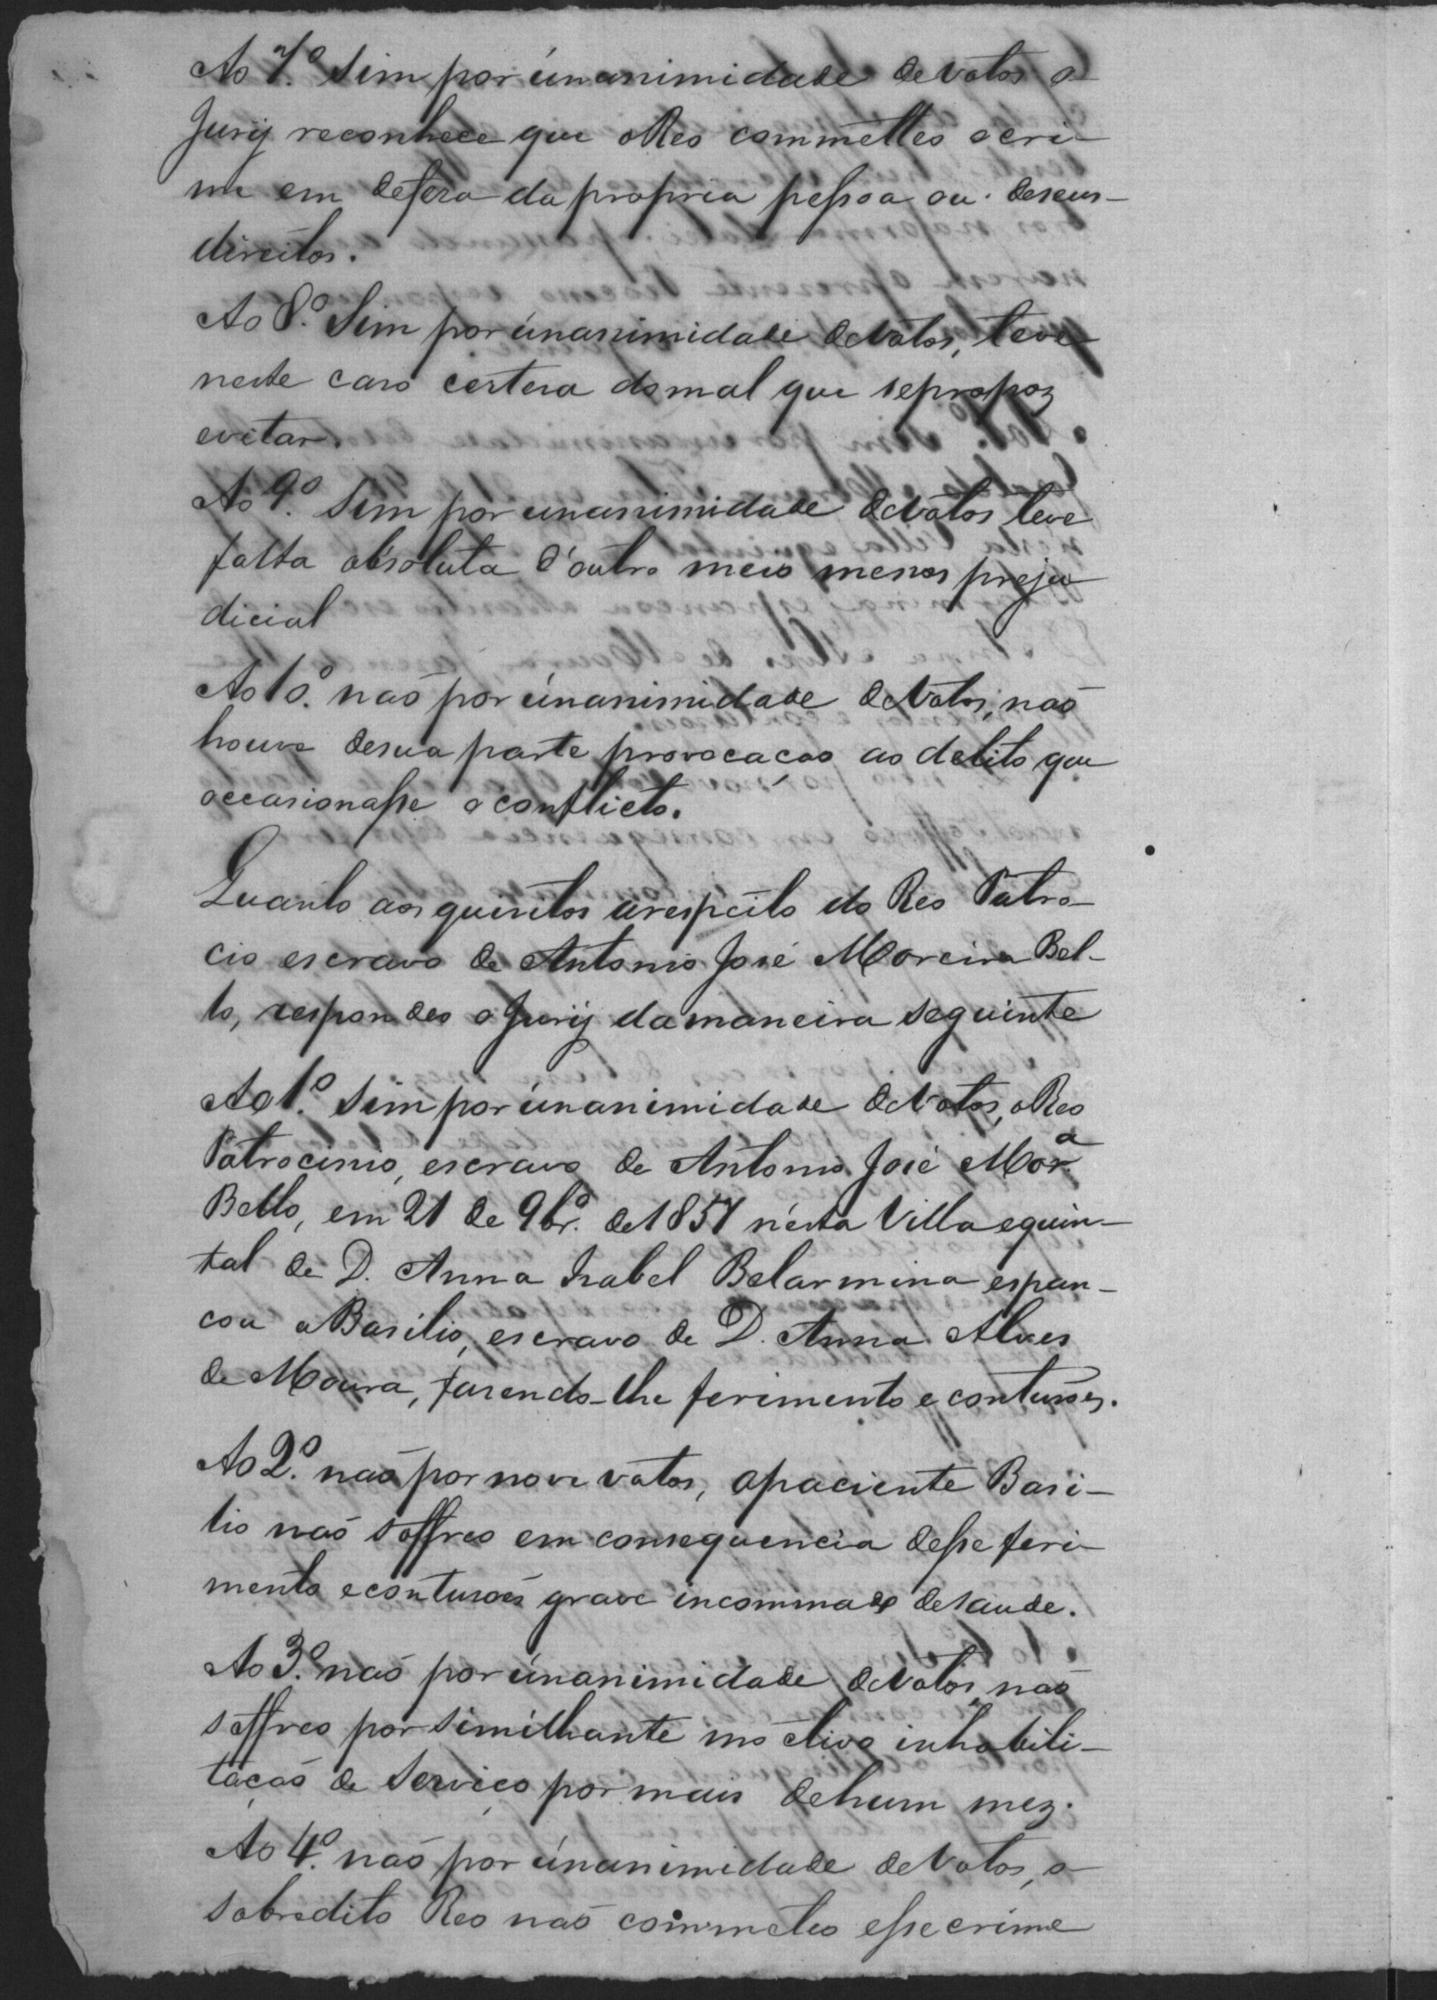 Ao 7.º Sim por únanimidade de votos o
Jury reconhece que o Reo commetteo o cri-
me em defesa da propria pessoa ou de seus
direitos.
Ao 8.º Sim por únanimidade de votos, teve
neste caso certesa do mal que se propoz
evitar.
Ao 9.º Sim por únanimidade de votos teve
falta absoluta d'outro meio menos preju
dicial
Ao 10.º naõ por únanimidade de votos, naõ
houve de sua parte provocaçaõ ao delito que
occasionasse o conflicto.
Quanto aos quisitos a respeito do Reo Patro-
cio escravo de Antonio José Moreira Bel-
lo, respondeo o Jury da maneira seguinte
Ao 1.º Sim por únanimidade de votos, o Reo
Patrocinio, escravo de Antonio José Mor.ª
Bello, em 21 de 9br.º de 1857 n'esta Villa e quin-
tal de D. Anna Izabel Belarmina espan-
cou a Basilio, escravo de D. Anna Alves
de Moura, fasendo-lhe ferimento e contusoẽs.
Ao 2.º naõ por nove votos, o paciente Basi-
lio naõ soffreo em consequencia desse feri-
mento e contusoẽs grave incommodo de saude.
Ao 3.º naõ por únanimidade de votos, naõ
soffreo por similhante motivo inhabili-
taçaõ de serviço por mais de hum mez.
Ao 4.º naõ por únanimidade de votos, o
sobredito Reo naõ commeteo esse crime